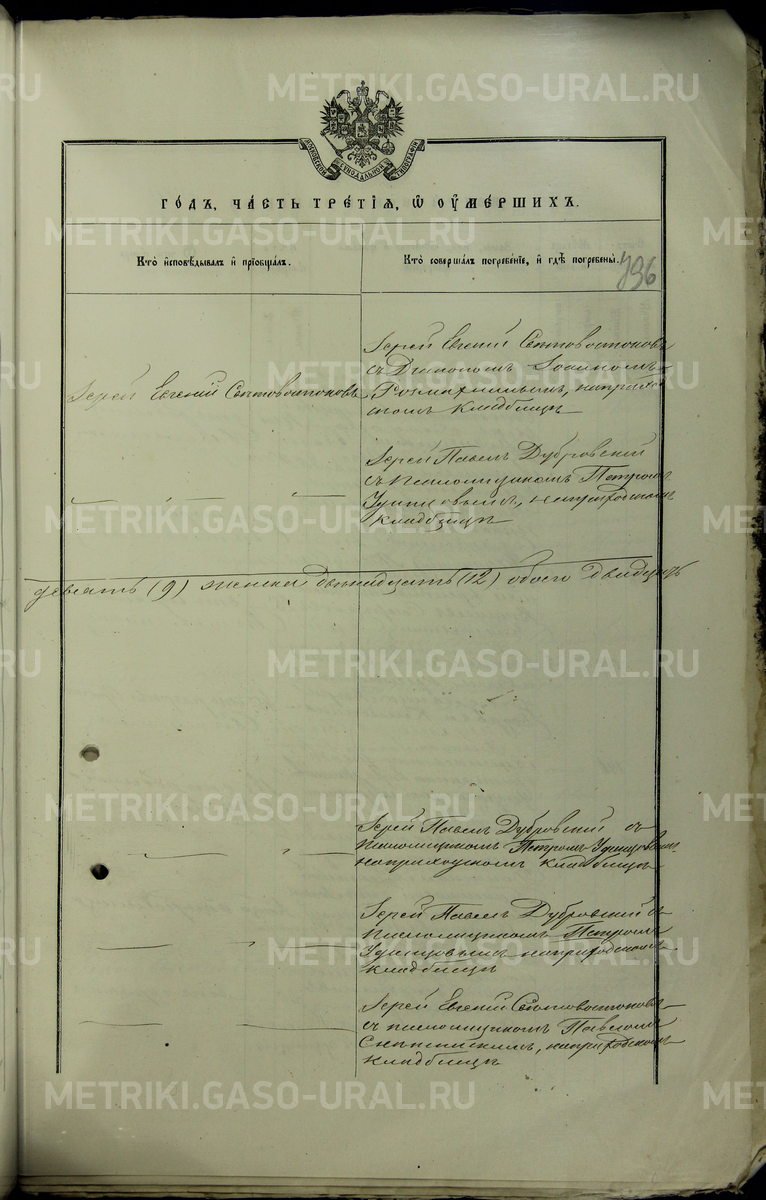 МОСКОВСКОЙ СѴНОДАЛЬНОЙ ТИПОГРАФІИ
ГО́ДЪ, ЧА́СТЬ ТРЕ́ТІѦ, Ѡ҆ ОУ҆МЕ́РШИХЪ.
Кто̀ и҆сповѣ́дывалъ и҆ прїобща́лъ.
Кто̀ соверша́лъ погребе́нїе, и҆ гдѣ̀ погребены̀.
796
Іерей Евгеній Святовостоковъ
Іерей Евгеній
съ Діакономъ Іоанномъ
на приход
скомъ кладбищѣ
Іерей Павелъ Дубровскій
съ псаломщикомъ Петромъ
на приходскомъ
кладбищѣ
девять (9) женска двѣнадцать (12) обоего двадцать
Іерей Павелъ Дубровскій съ
псаломщикомъ Петромъ
на приходскомъ кладбищѣ
Іерей Павелъ Дубровскій съ
псаломщикомъ Петромъ
на приходскомъ
кладбищѣ
Іерей Евгеній
съ псаломщикомъ Павломъ
на приходскомъ
кладбищѣ
METRIKI.GASO-URAL.RU